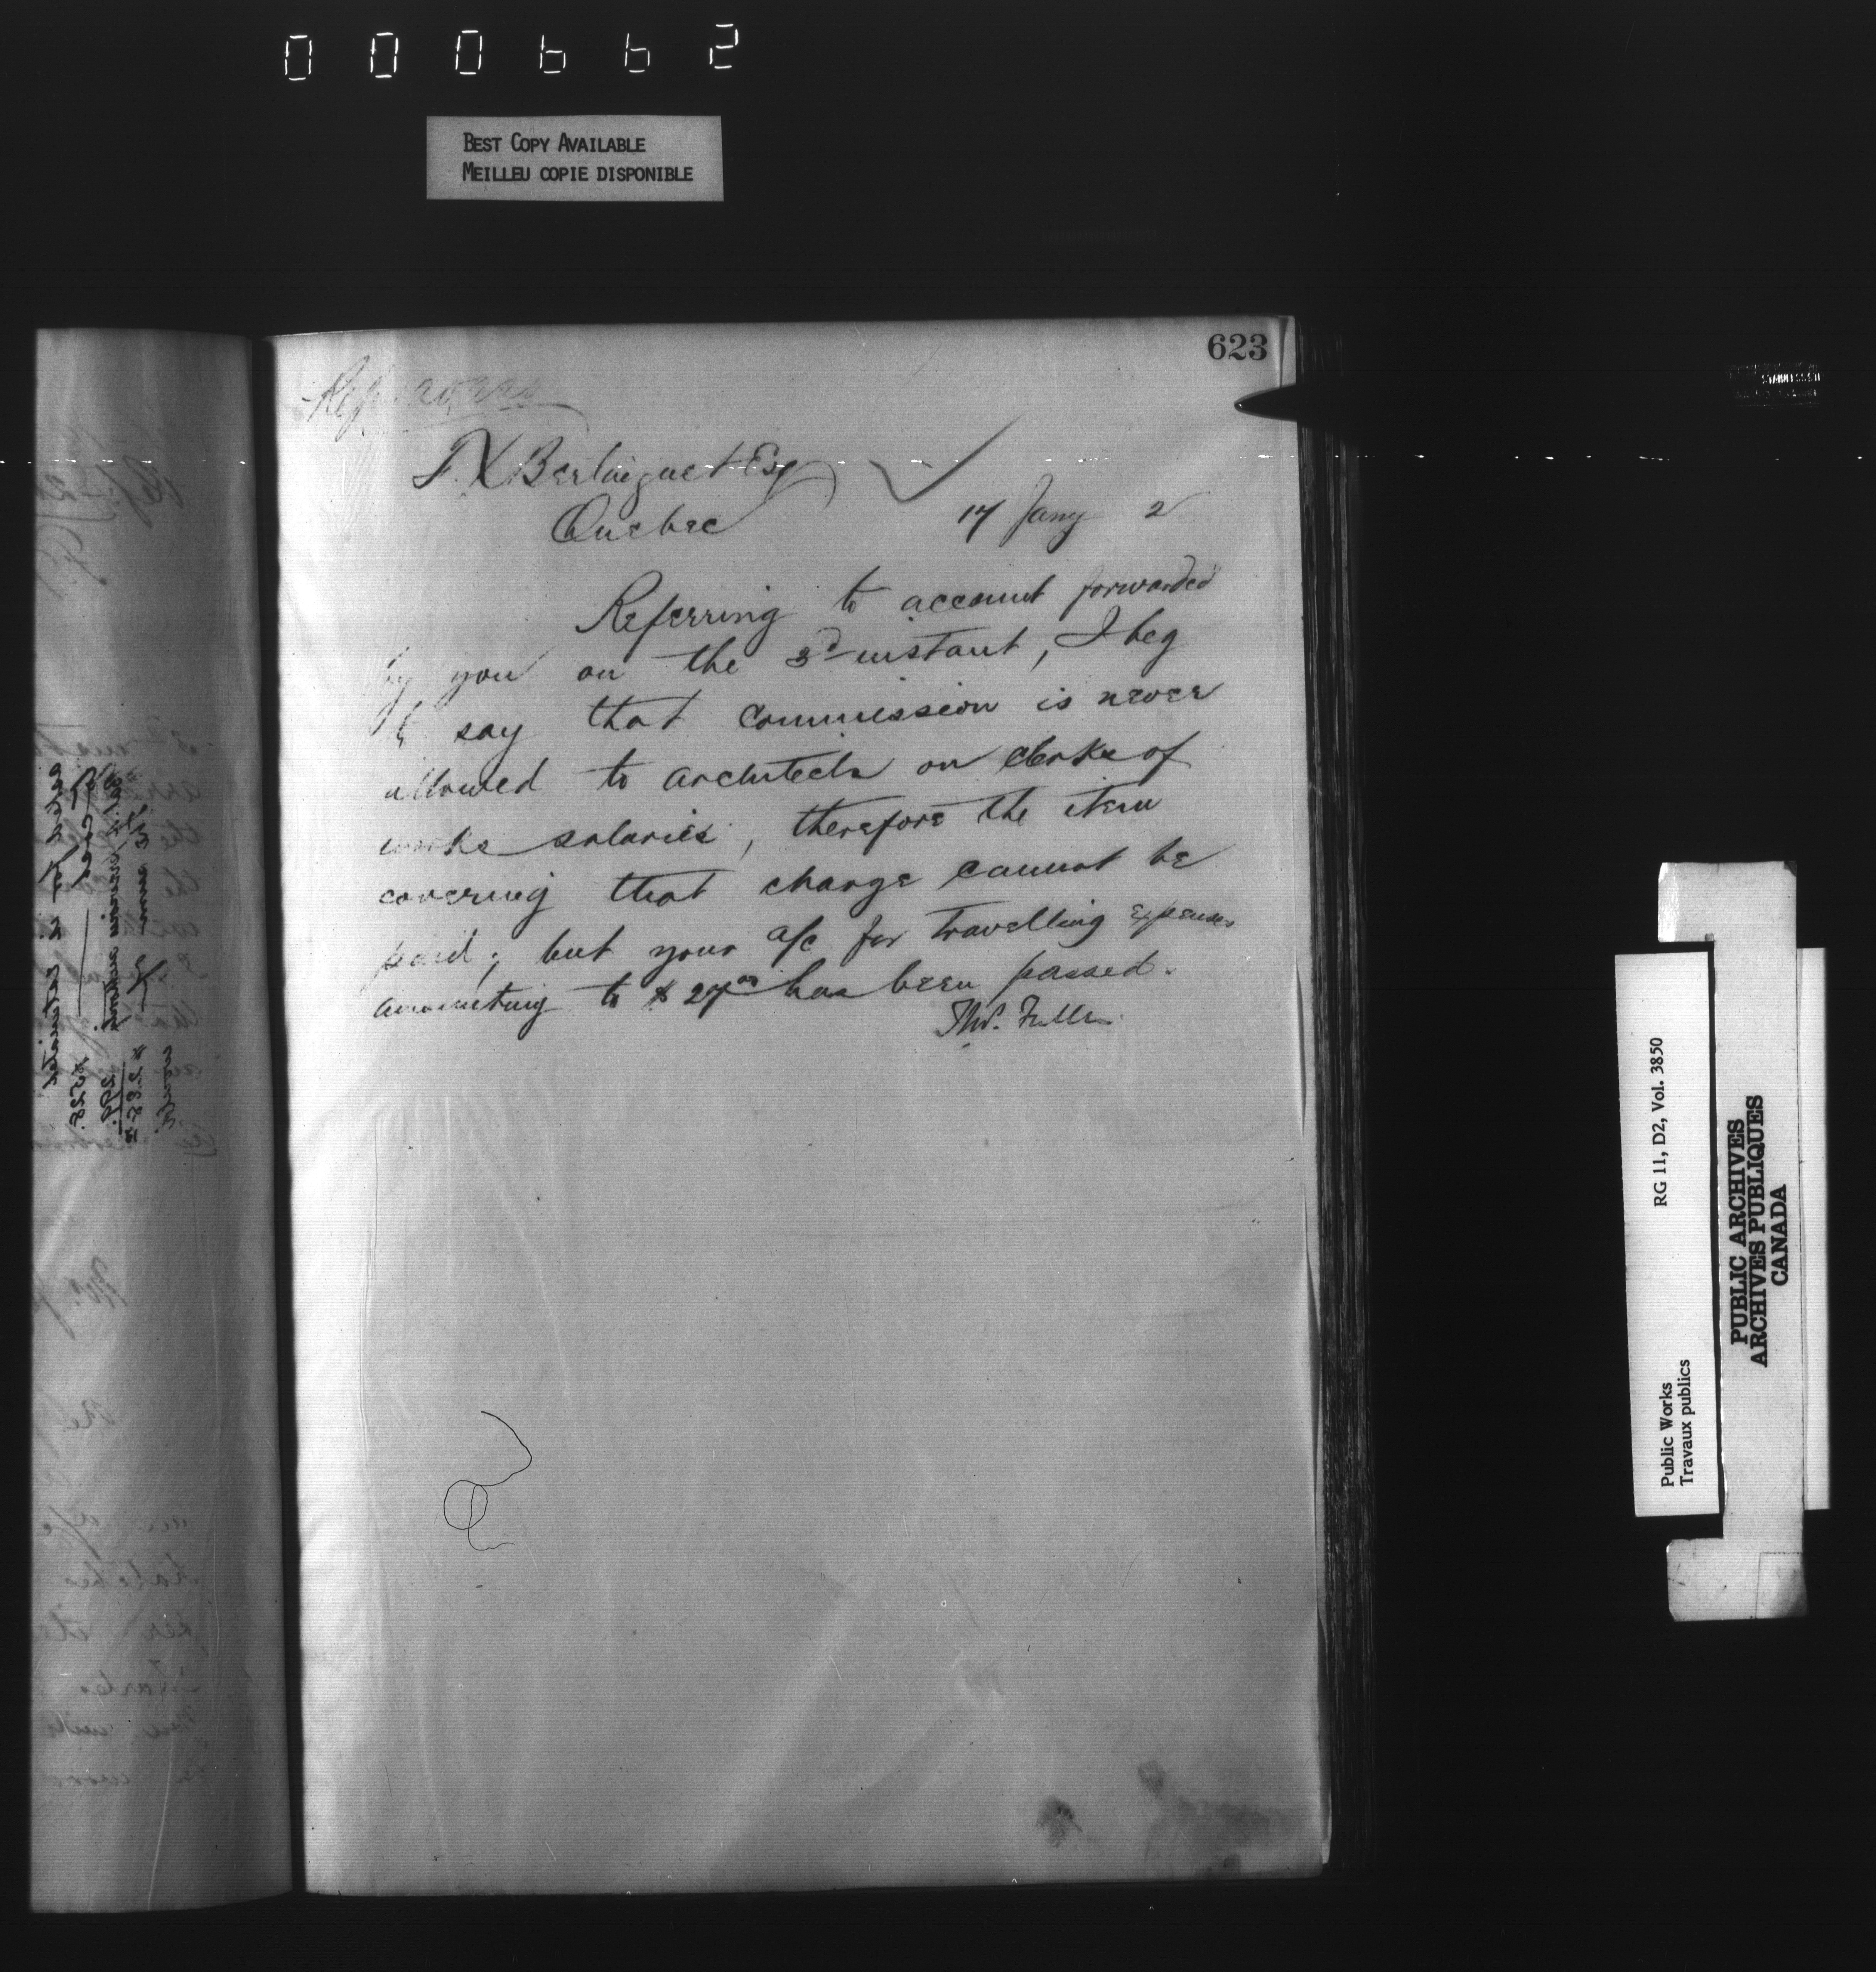 000662
BEST COPY AVAILABLE
MEILLEU COPIE DISPONIBLE
623
F. X Berlinguet Esq
Quebec
17 Jany 2
Referring to account forwarded
by you on the 3d instant, I beg
to say that commission is never
allowed to architects on clerks of
works salaries, therefore the item
covering that charge cannot be
paid; but your a/c for travelling expenses
amounting to $27.00 has been passed.
Thos. Fuller
RG 11, D2, Vol. 3850
Public Works
Travaux publics
PUBLIC ARCHIVES
ARCHIVES PUBLIQUES
CANADA